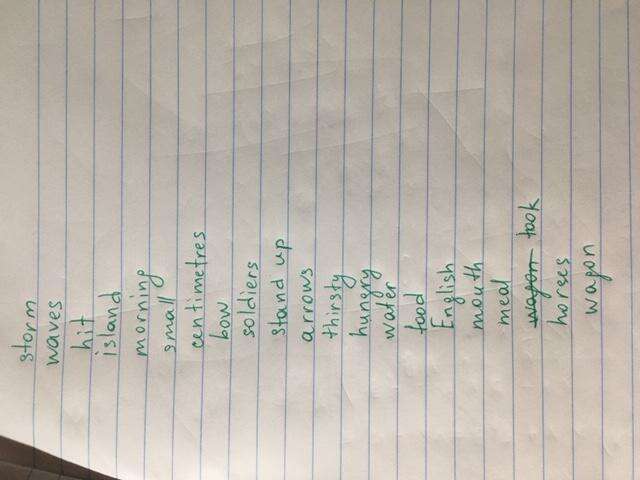 storm
waves
hit
island
morning
small
centimetres
bow
soldiers
stand up
arrows
thirsty
hungry
water
food
English
mouth
meal
wagon took
horses
wagon